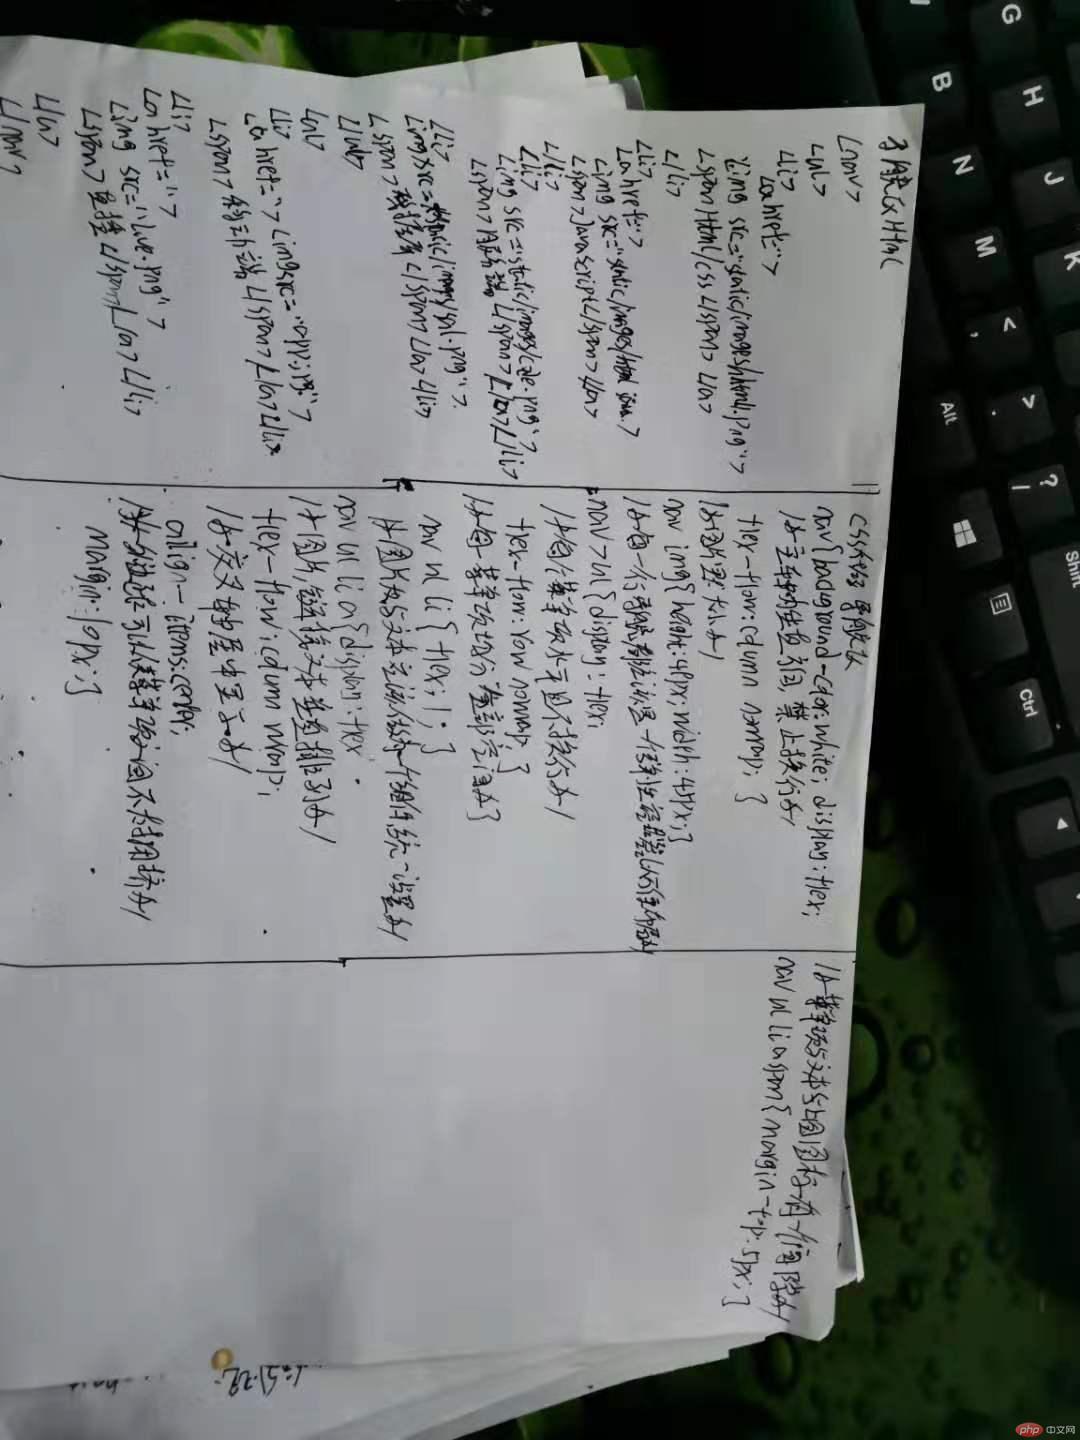 导航区Html
<nav>
<ul>
<li>
<a href="">
<img src="static/images/html.png">
<span Html/css </span> </a>
</li>
<li>
<a href="">
<img src="static/images/html
<span>JavaScript</span> </a>
</li>
<li>
<img src=static/images/code.png">
<span> </span> </a></li>
<li>
<img src=static/images/sql.png">
<span> </span> </a> </li>
</ul>
<ul>
<li>
<a href=""> <img src="vip.jpg">
<span> </span> </a> </li>
<li>
<a href="">
<img src="live.png">
<span>直播</span></a></li>
</ul>
</nav>
css代码 导航区
nav{background-color:white; display:flex;
/*主轴为垂直方向,禁止换行*/
flex-flow:column nowrap; }
/*图片默认大小*/
nav img{height:40px; width:45px;}
nav>ul{display:flex;
/*每个菜单项水平且不换行*/
flex-flow:row nowrap; }
/*每一菜单项均分全部空间*/}
nav ul li { flex:1; }
nav ul li a{display:flex
/*图片,链接文本垂直排列*/
flex-flow:column nwap;
/*交叉轴居中显示*/
align-items:center;
margin:10px;}
/*菜单项文本与上面图标有个间隙*/
nav ul li a span{margin-top:5px;}
G
H
B
J
N
K
M
<
,
>
.
?
/
Alt
Shift
Ctrl
php 中文网